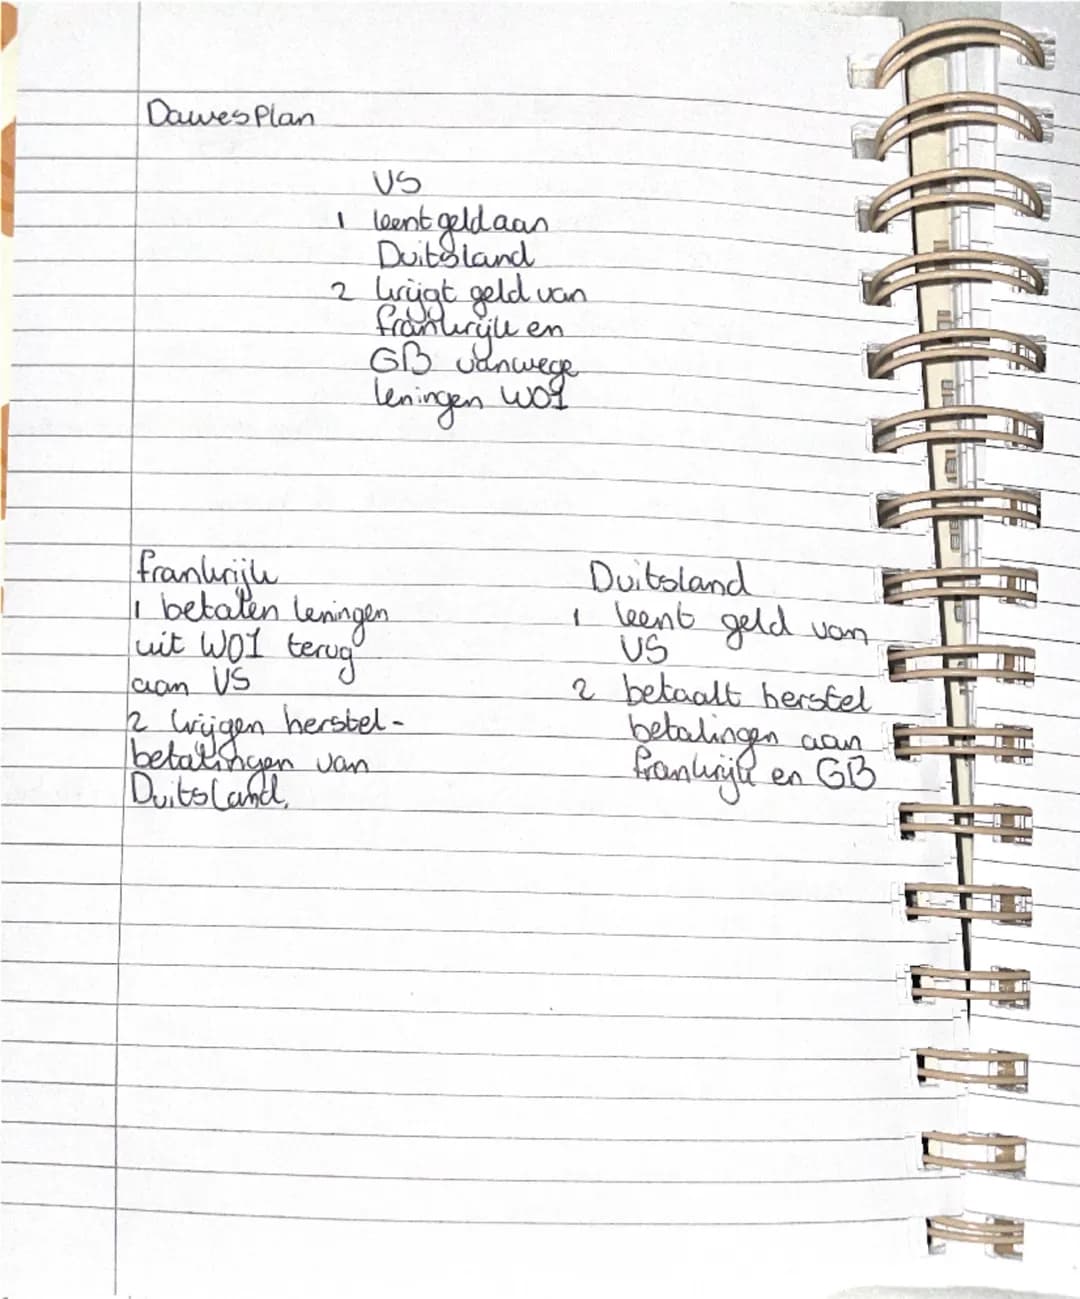 Dawes Plan
VS
1 leent geld aan
Duitsland
2 krijgt geld van
frankrijk en
GB vanwege
leningen WO1
frankrijk
1 betalen leningen
uit WO1 terug
aan VS
2 krijgen herstel-
betalingen van
Duitsland.
Duitsland
1 leent geld van
VS
2 betaalt herstel
betalingen aan
frankrijk en GB